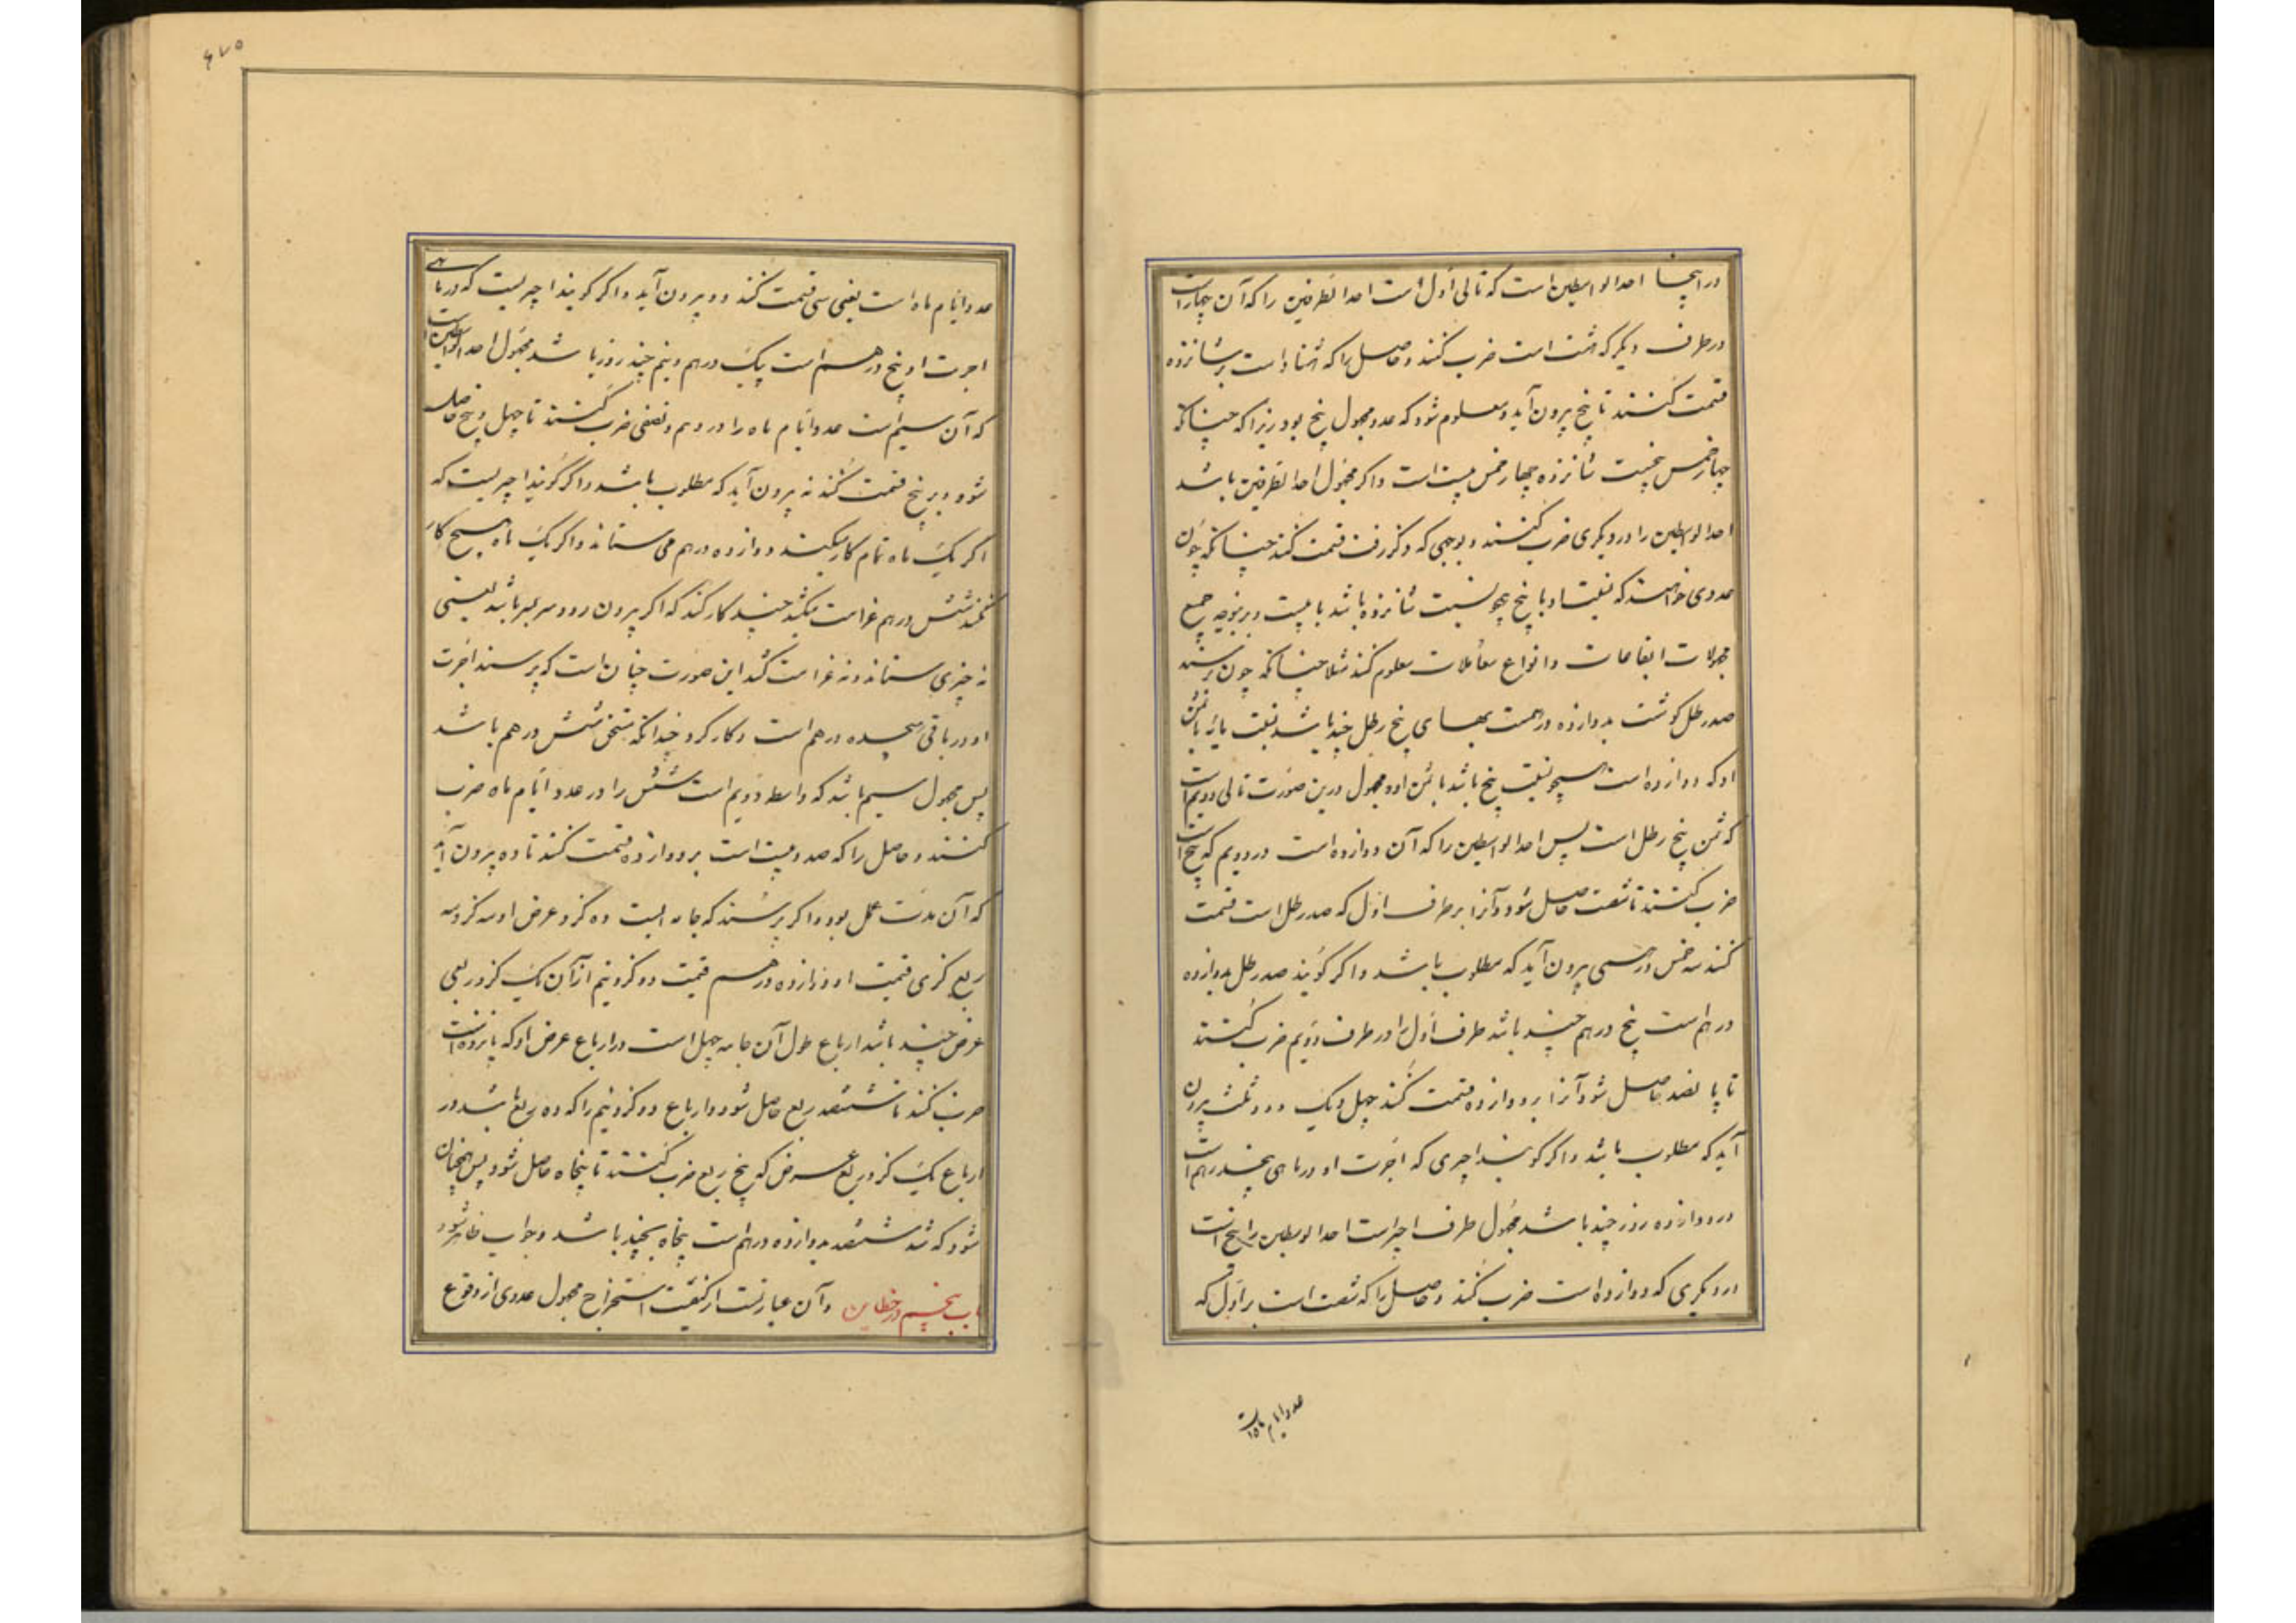 در اینجا احد الوسطین است که تالی اول است احد الطرفین را که آن چهار است
در طرف دیگر که بیست است ضرب کنند و حاصل را که هشتاد است بر شانزده
قسمت کنند تا پنج بیرون آید و معلوم شود که عدد مجهول پنج بود زیرا که چنانکه
چهار خمس بیست شانزده چهار خمس بیست است و اگر مجهول احد الطرفین باشد
احد الوسطین را در دیگری ضرب کنند و بوجهی که ذکر رفت قسمت کنند چنانکه چون
عددی خواهند که نسبت او با پنج چو نسبت شانزده باشد با بیست و برینوجه جمیع
مجهولات ابتیاعات و انواع معاملات معلوم کنند مثلا چنانکه چون پرسند
صد رطل گوشت بدوازده درهمست بهای پنج رطل چند باشد نسبت با ثمن
او که دوازده است همچو نسبت پنج باشد با ثمن او و مجهول درین صورت تالی دویم است
که ثمن پنج رطل است پس احد الوسطین را که آن دوازده است در دویم که پنج است
ضرب کنند تا شصت حاصل شود و آنرا بر طرف اول که صد رطل است قسمت
کنند سه خمس درهمی بیرون آید که مطلوب باشد و اگر گویند صد رطل بدوازده
درهم است پنج درهم چند باشد طرف اول را در طرف دویم ضرب کنند
تا پانصد حاصل شود و آنرا بر دوازده قسمت کنند چهل و یک و دو ثلث بیرون
آید که مطلوب باشد و اگر گویند اجیری که اجرت او در ماهی پنجدرهم است
در دوازده روز چند باشد مجهول طرف اخیر است احد الوسطین را که پنج است
در دیگری که دوازده است ضرب کنند و حاصل را که شصت است بر اول که
عدد ایام ماه است
۴۷۵
عدد ایام ماه است یعنی سی قسمت کنند دو بیرون آید و اگر گویند اجیریست که در ماهی
اجرت او پنج درهم است یک درهم و نیم چند روز باشد مجهول احد الوسطین است
که آن سیم است عدد ایام ماه را در درهم و نصفی ضرب کنند تا چهل و پنج حاصل
شود و بر پنج قسمت کنند نه بیرون آید که مطلوب باشد و اگر گویند اجیریست که
اگر یک ماه تمام کار میکند دوازده درهم می ستاند و اگر یک ماه هیچ کار
نکند شش درهم غرامت میکشد چند کار کند که اگر بیرون رود سر بسر باشد یعنی
نه چیزی ستاند و نه غرامت کشد این صورت چنان است که پرسند اجرت
او در باقی هجده درهم است و کار کرد چندانکه مستحق شش درهم باشد
پس مجهول سیم باشد که واسطه دویم است شش را در عدد ایام ماه ضرب
کنند و حاصل را که صد و بیست است بر دوازده قسمت کنند تا ده بیرون آید
که آن مدت عمل بود و اگر پرسند که جامه ایست ده گز و عرض او سه گز و سه
ربع گزی قیمت او دوازده درهم قیمت دو گز و نیم از آن یک گز و ربعی
عرض چند باشد ارباع طول آن جامه چهل است در ارباع عرض او که پانزده است
ضرب کنند تا ششصد ربع حاصل شود و ارباع دو گز و نیم را که ده ربع باشد در
ارباع یک گز و ربع عرض که پنج ربع ضرب کنند تا پنجاه حاصل شود پس همچنان
شود که ششصد بدوازده درهم است پنجاه بچند باشد و جواب ظاهر شود
باب پنجم در خطاین و آن عبارتست از کیفیت استخراج مجهول عددی از وقوع